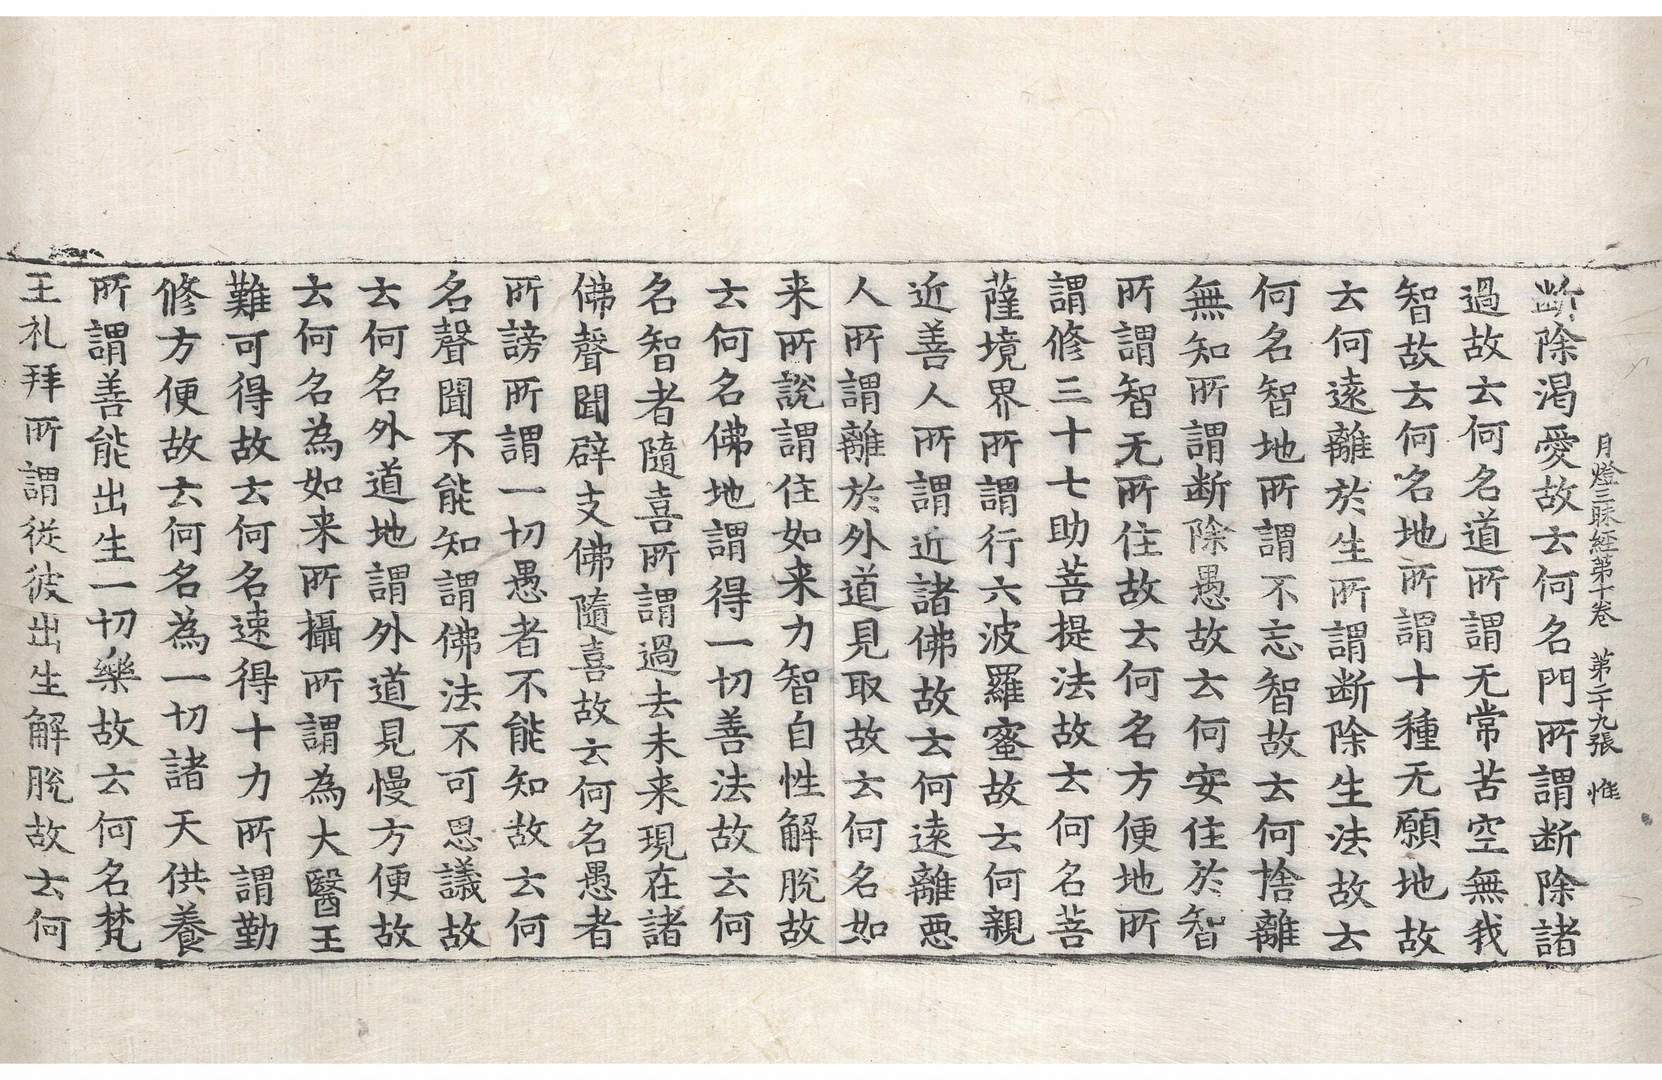 月燈三昧經第十卷　第二十九張　惟
断除渴愛故去何名門所謂断除諸
過故去何名道所謂无常苦空無我
智故去何名地所謂十種无願地故
去何遠離於生所謂断除生法故去
何名智地所謂不忘智故去何捨離
無知所謂断除愚故去何安住於智
所謂智无所住故去何名方便地所
謂修三十七助菩提法故去何名菩
薩境界所謂行六波羅蜜故去何親
近善人所謂近諸佛故去何遠離惡
人所謂離於外道見取故去何名如
来所說謂住如来力智自性解脫故
去何名佛地謂得一切善法故去何
名智者隨喜所謂過去未来現在諸
佛聲聞辟支佛隨喜故去何名愚者
所謗所謂一切愚者不能知故去何
名聲聞不能知謂佛法不可思議故
去何名外道地謂外道見慢方便故
去何名為如来所攝所謂為大醫王
難可得故去何名速得十力所謂勤
修方便故去何名為一切諸天供養
所謂善能出生一切樂故去何名梵
王礼拜所謂従彼出生解脫故去何